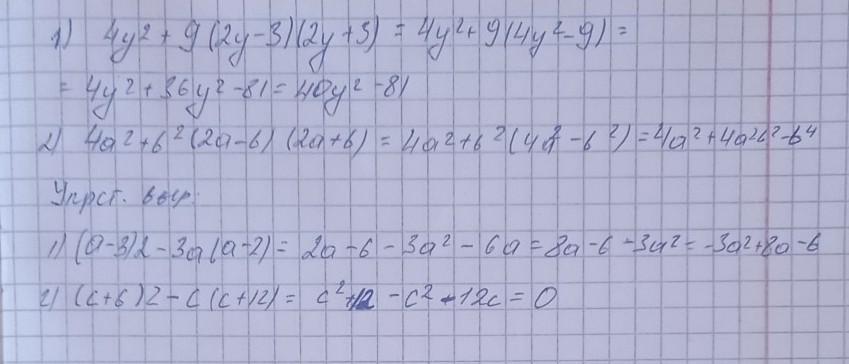 1) 4y² + 9(2y-3)(2y+3) = 4y² + 9(4y²-9) =
= 4y² + 36y² - 81 = 40y² - 81
2) 4a² + b²(2a-b)(2a+b) = 4a² + b²(4a² - b²) = 4a² + 4a²b² - b⁴
Упрст. выр.
1) (a-3)2 - 3a(a-2) = 2a - 6 - 3a² - 6a = 8a - 6 - 3a² = -3a² + 8a - 6
2) (c+6)2 - c(c+12) = c² + 12 - c² - 12c = 0